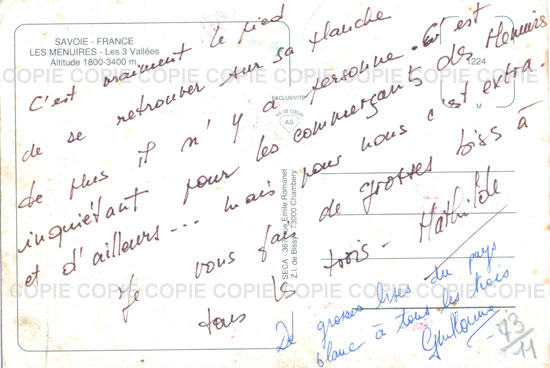 SAVOIE - FRANCE
LES MENUIRES - Les 3 Vallées
Altitude 1800-3400 m
EXCLUSIVITÉ
AS DE CŒUR
AS
1224
M
SECA - 367 rue Emile Romanet
Z.I. de Bissy - 73000 Chambéry
COPIE COPIE COPIE COPIE COPIE COPIE COPIE COPIE
C'est vraiment le pied
de se retrouver sur sa planche
de plus il n'y a personne. C'est
inquiétant pour les commerçants des Menuires
et d'ailleurs... mais pour nous c'est extra.
Je vous fais de grosses biss à
tous les trois - Mathilde
De grosses bises du pays
blanc à tous les trois
Guillaume
73/11
COPIE COPIE COPIE COPIE COPIE COPIE COPIE COPIE